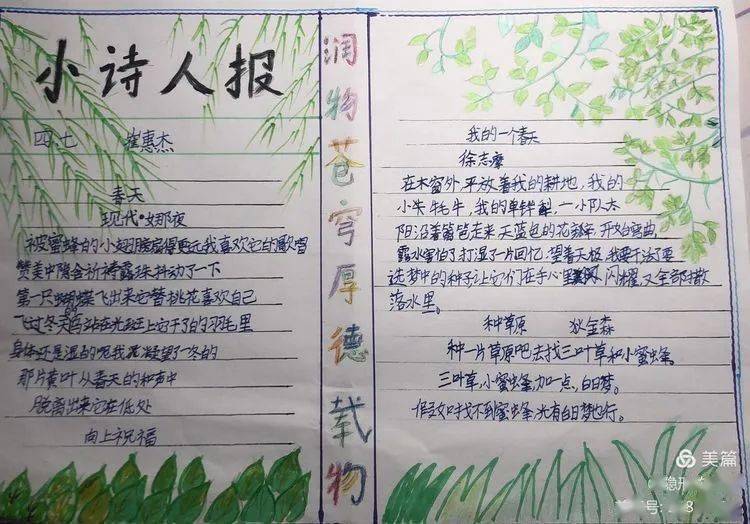 小诗人报
四七 崔惠杰
春天
现代·娜夜
被蜜蜂的小翅膀扇得更远我喜欢它的歌唱
赞美中隐含祈祷露珠抖动了一下
第一只蝴蝶飞出来它替桃花喜欢自己
飞过冬天鸟站在光斑上它干了的羽毛里
身体还是湿的呢我凝望了一冬的
那片黄叶从春天的和声中
脱离出来它在低处
向上祝福
润物苍穹厚德载物
我的一个春天
徐志摩
在木窗外,平放着我的耕地,我的
小牦牛,我的单铧犁,一小队太
阳沿着篱笆走来天蓝色的花瓣开始弯曲
露水害怕了打湿了一片回忆望着天极我要干活了要
选梦中的种子让它们在手心里闪耀又全部撒
落水里。
种草原 狄金森
种一片草原吧去找三叶草和小蜜蜂。
三叶草,小蜜蜂,加一点,白日梦。
假如找不到蜜蜂,光有白日梦也行。
美篇